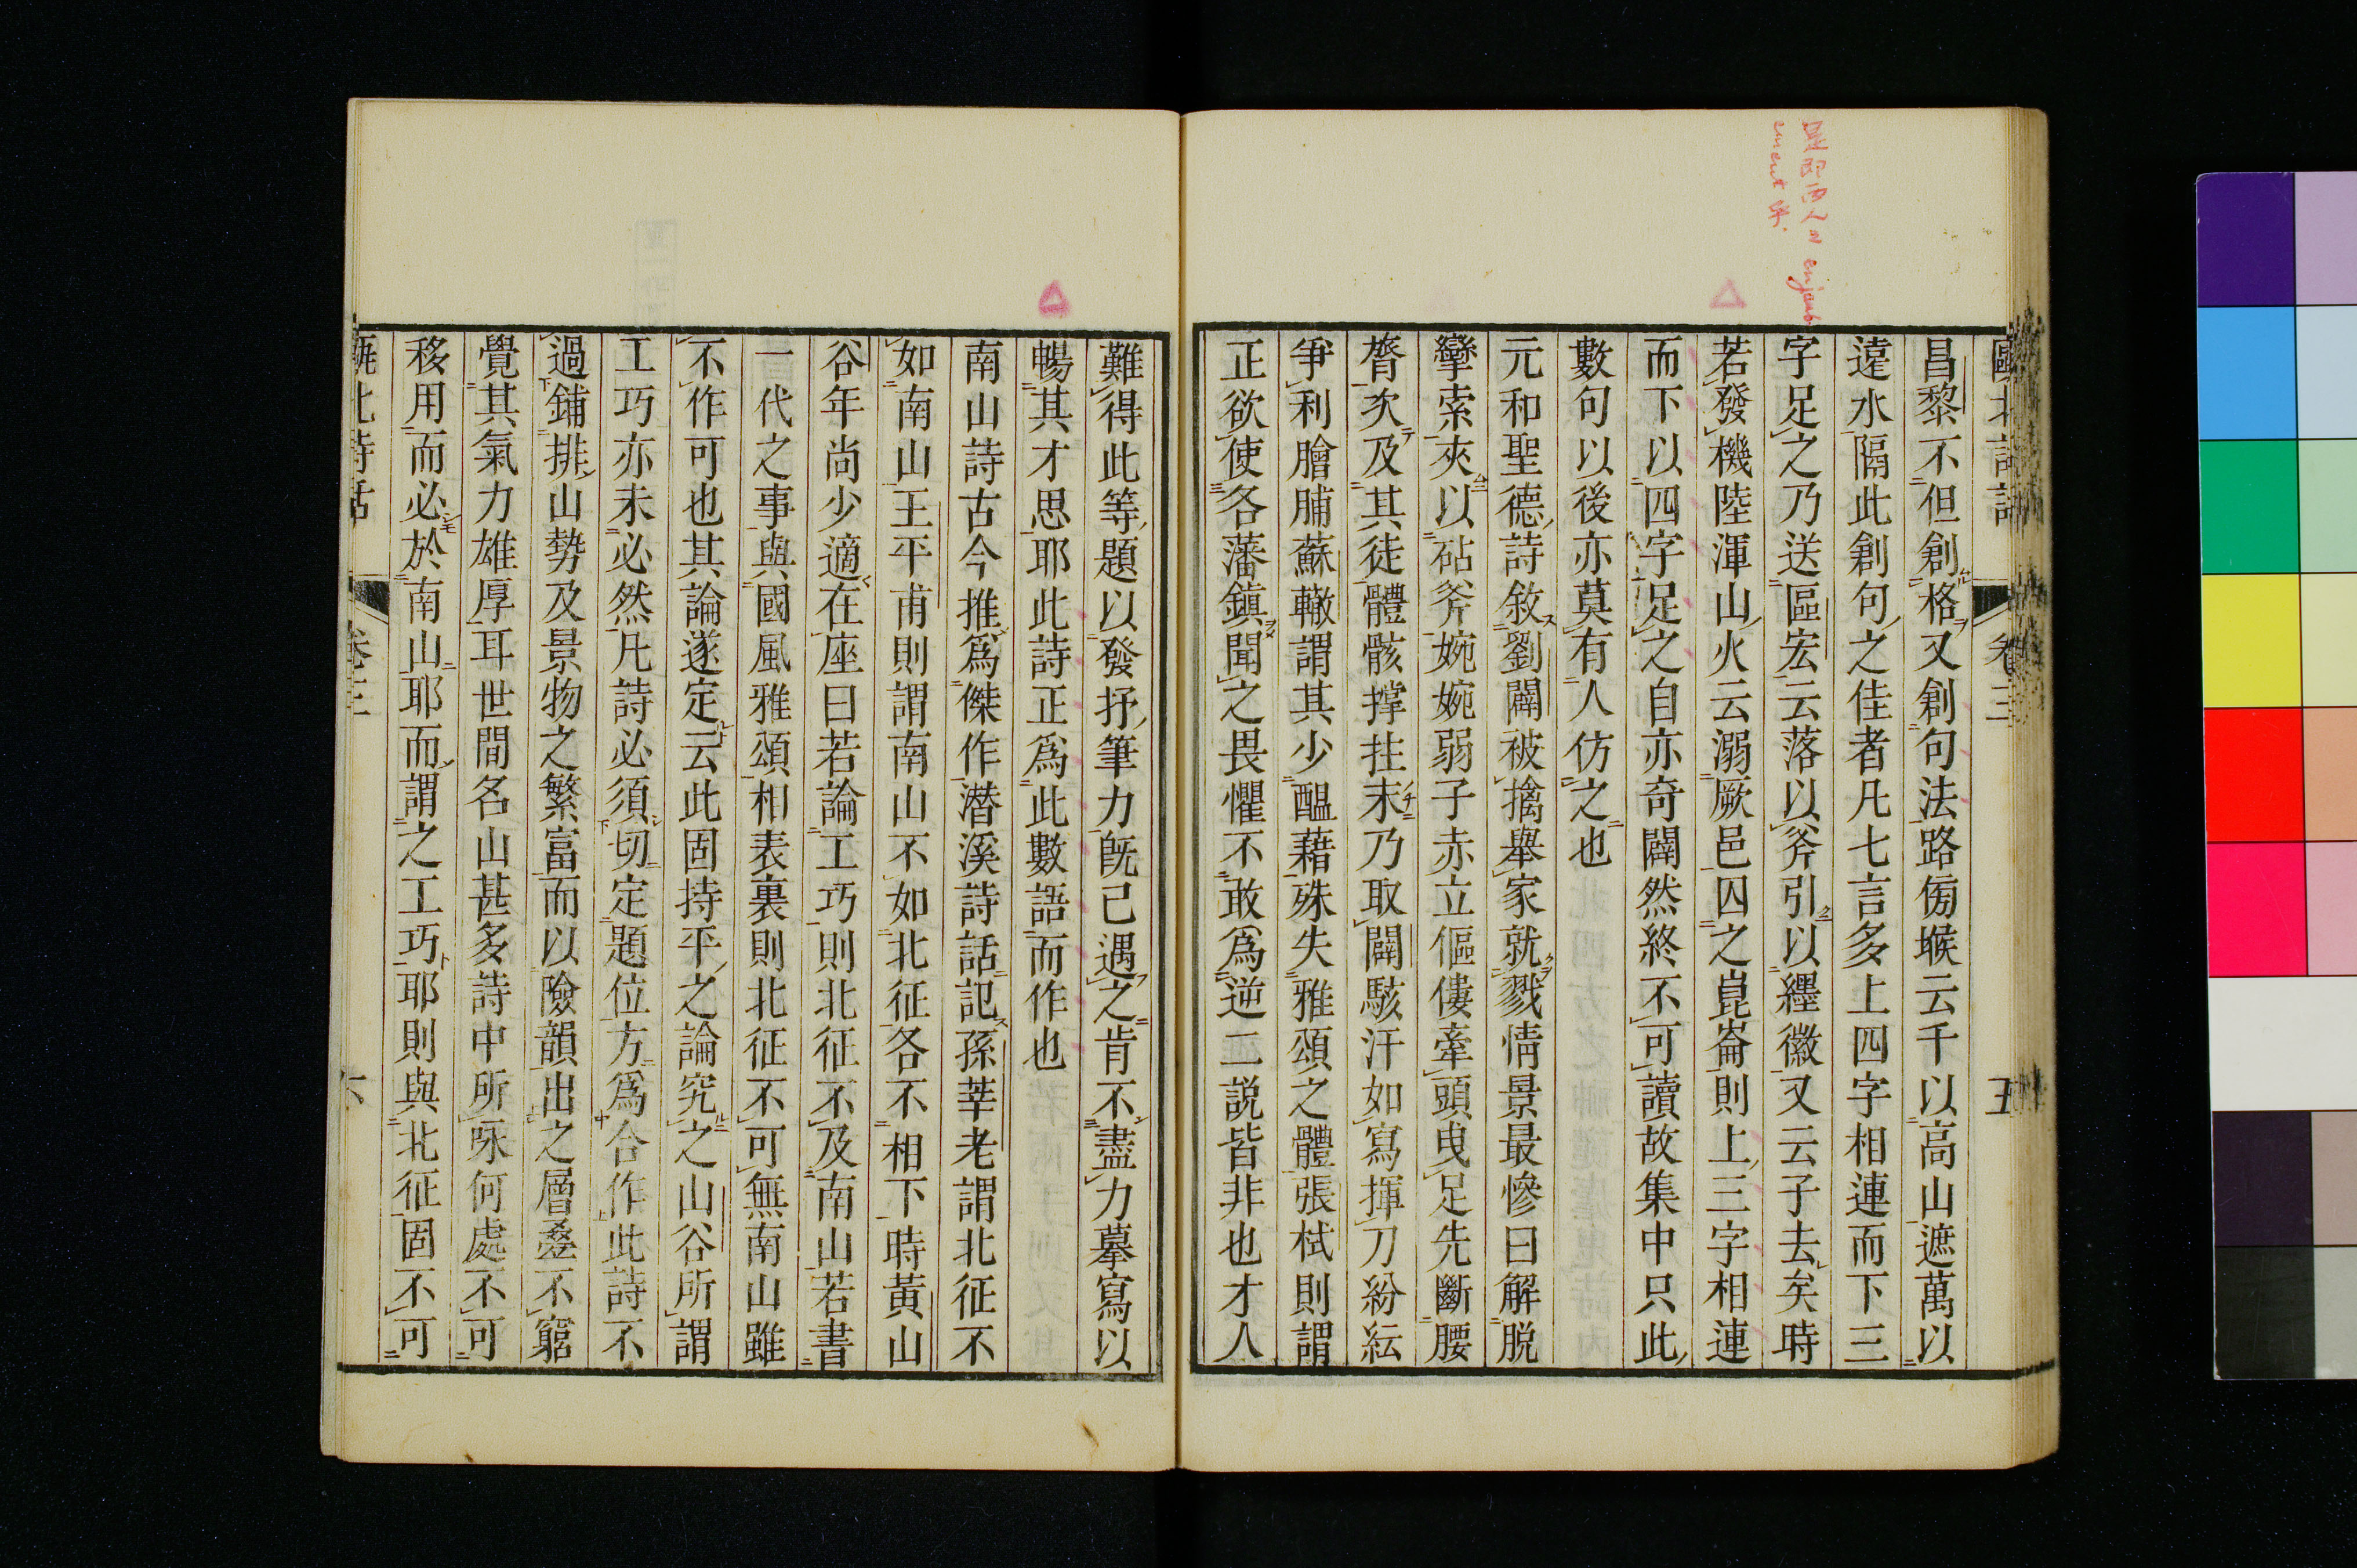 昌黎不但創格又創句法路傍堠云千以高山遮萬以
遠水隔此創句之佳者凡七言多上四字相連而下三
字足之乃送區宏云落以斧引以纆徽又云子去矣時
若發機陸渾山火云溺厥邑囚之崑崙則上三字相連
而下以四字足之自亦奇闢然終不可讀故集中只此
數句以後亦莫有人仿之也
元和聖德詩敘劉闢被擒舉家就戮情景最慘曰解脫
攣索夾以砧斧婉婉弱子赤立傴僂牽頭曳足先斷腰
膂次及其徒體骸撐拄末乃取闢駭汗如寫揮刀紛紜
爭刌膾脯蘇轍謂其少醞藉殊失雅頌之體張栻則謂
正欲使各藩鎮聞之畏懼不敢爲逆二說皆非也才人
難得此等題以發抒筆力旣已遇之肯不盡力摹寫以
暢其才思耶此詩正爲此數語而作也
南山詩古今推爲傑作潛溪詩話記孫莘老謂北征不
如南山王平甫則謂南山不如北征各不相下時黃山
谷年尚少適在座曰若論工巧則北征不及南山若書
一代之事與國風雅頌相表裏則北征不可無南山雖
不作可也其論遂定云此固持平之論究之山谷所謂
工巧亦未必然凡詩必須切定題位方爲合作此詩不
過鋪排山勢及景物之繁富而以險韻出之層疊不窮
覺其氣力雄厚耳世間名山甚多詩中所咏何處不可
移用而必於南山耶而謂之工巧耶則與北征固不可
甌北詩話
卷三
六
甌北詩話
卷三
五